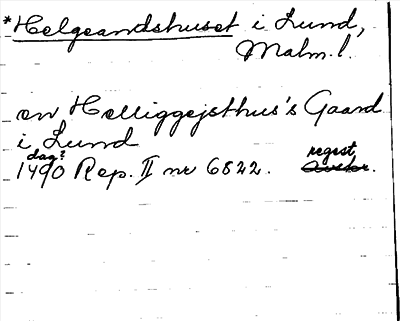 *Helgeandshuset i Lund,
Malm. l.
en Helliggejsthus's Gaard
i Lund
dag?
1490 Rep. II nr 6822. regest.